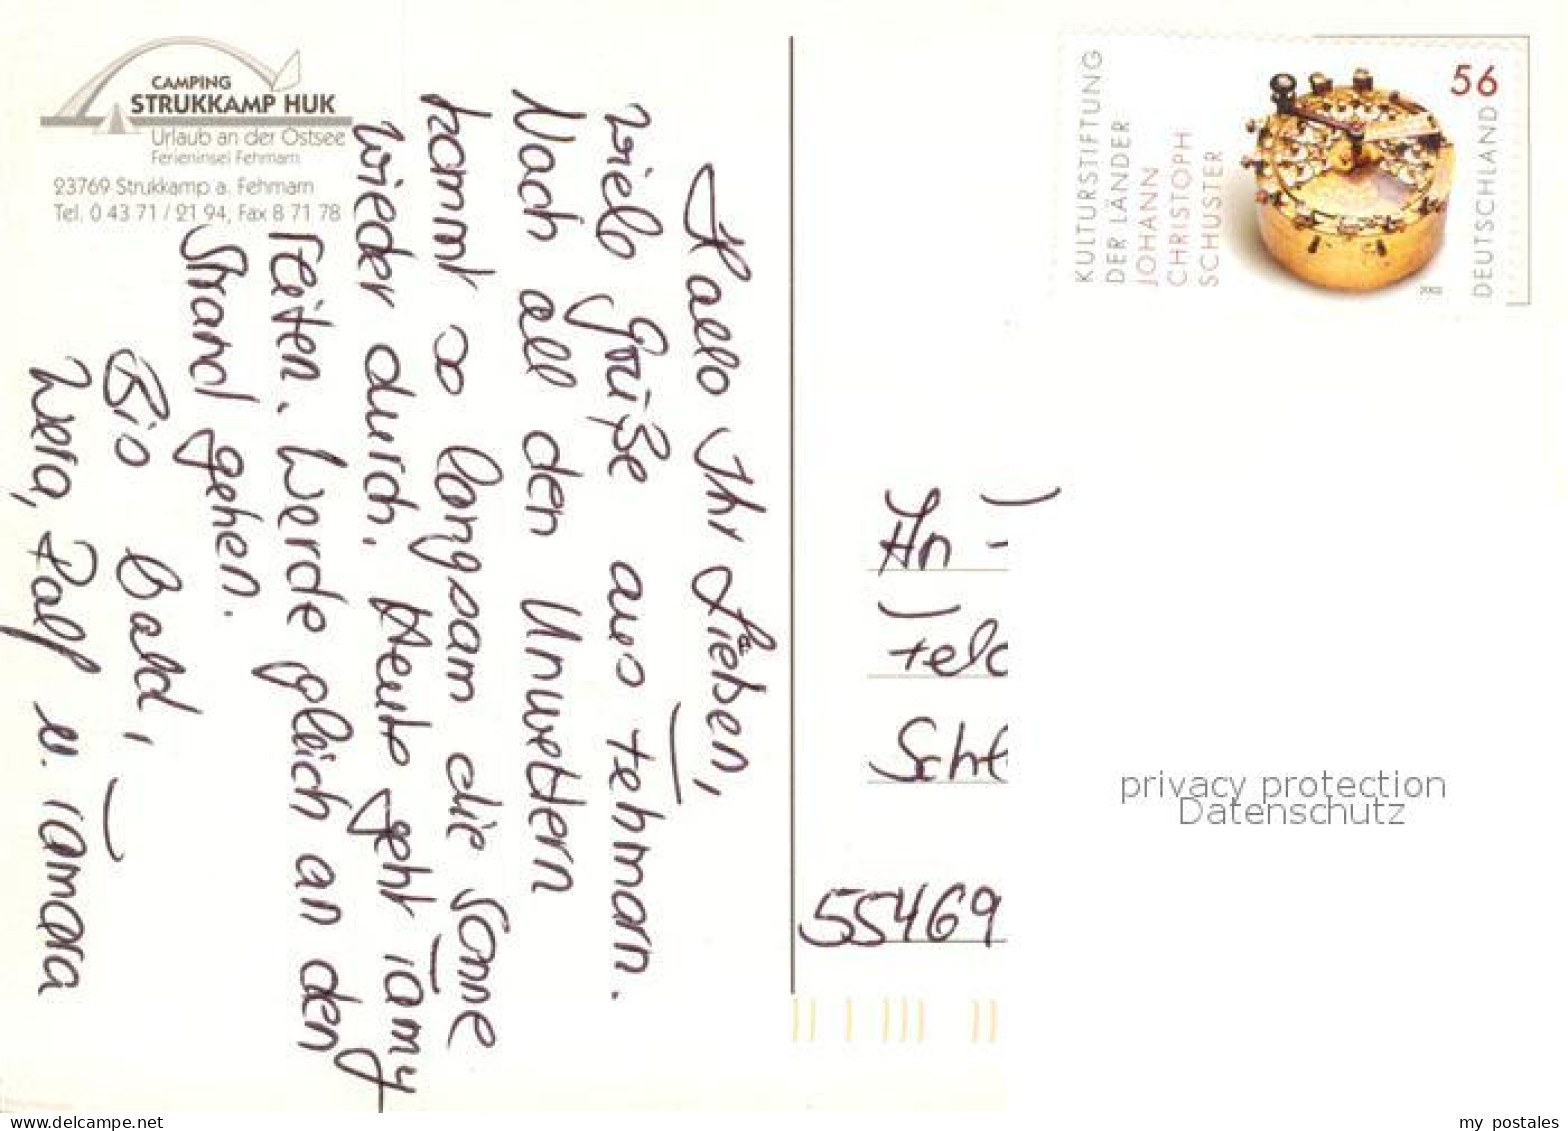 CAMPING
STRUKKAMP HUK
Urlaub an der Ostsee
Ferieninsel Fehmarn
23769 Strukkamp a. Fehmarn
Tel. 0 43 71 / 21 94, Fax 8 71 78
Hallo Ihr Lieben,
viele Grüße aus Fehmarn.
Nach all den Unwettern
kommt so langsam die Sonne
wieder durch. Heute geht Tamy
reiten. Werde gleich an den
Strand gehen.
Bis bald,
Wera, Ralf u. Tamara
KULTURSTIFTUNG
DER LÄNDER
JOHANN
CHRISTOPH
SCHUSTER
56
DEUTSCHLAND
2002
An
Feld
Sch
55469
privacy protection
Datenschutz
www.delcampe.net
my_postales